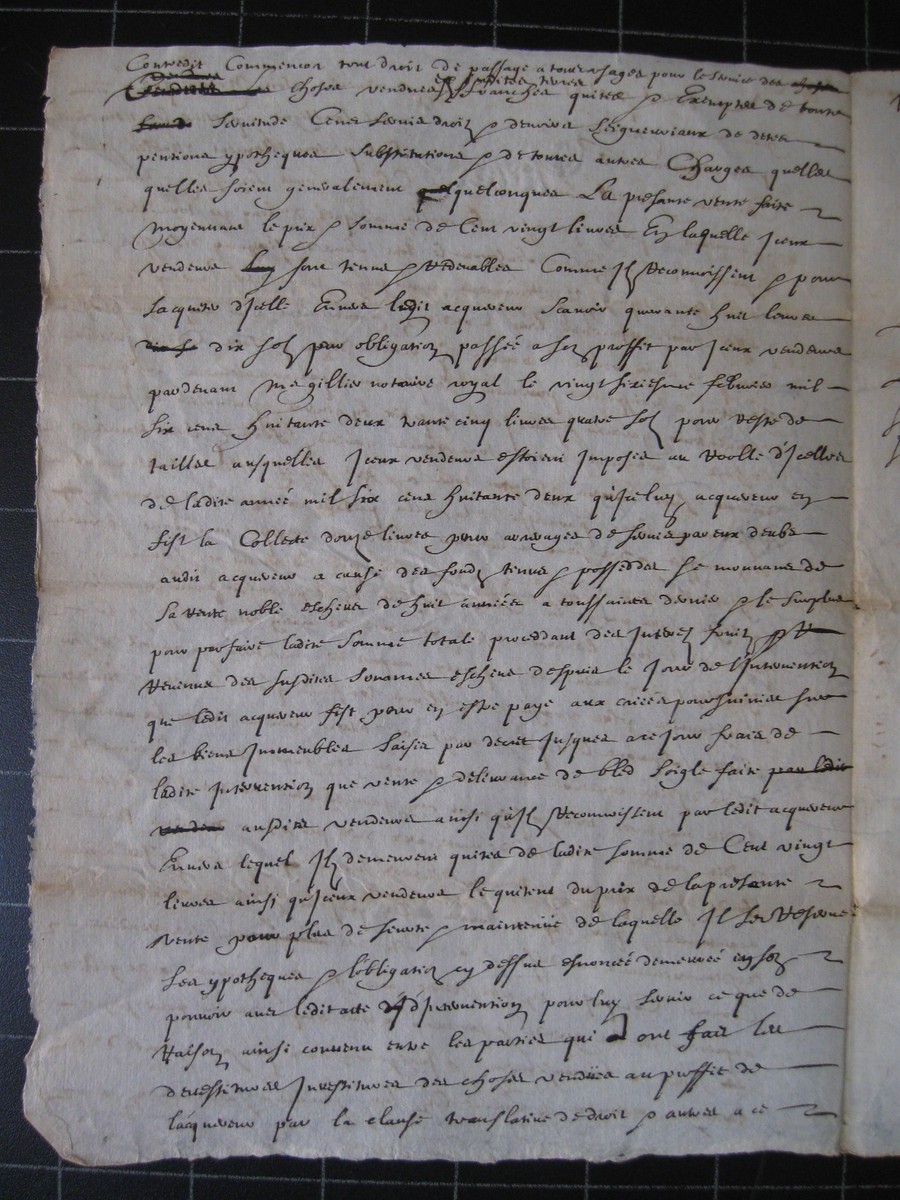 Contredit Comme icor tout droit de passage a tour usages pour le service des
choses vendues susdites terres franches quites & Exemptes de toute
servitude Cens servis droitz & devoirs seigneuriaux de detes
pentions ypotheques substitutions & de toutes autres Charges quelles
quelles soient generalement quelconques La presante vente faite
moyennant le prix & somme de Cent vingt livres En laquelle Iceux
vendeurs sont tenus & redevables Comme Ilz Reconnoissent & pour
sacquiter dicelle Envers ledit acquereur scavoir quarante huit livres
dix solz par obligation passée a son proffit par Iceux vendeurs
pardevant me gillier notaire royal le vingt sixiesme febvrier mil
six cens huitante deux trante cinq livres quatre solz pour reste de
tailles ausquelles Iceux vendeurs estoient Imposes au Roolle d'Icelles
de ladite année mil six cens huitante deux qu'Iceluy acquereur en
fist la Collecte douze livres pour arrerages de servis par eux deubs
audit acquereur a cause des fondz tenus & possedes se mouvans de
sa rente noble escheus de huit années a toussaintz dernier & le surplus
pour parfaire ladite somme totale proceddant des Interestz
Revenus des susdites sommes escheus despuis le Jour de l'Intervention
que ledit acquereur fist pour en estre payé aux criées poursuivies sur
les biens Immeubles saisis par decret Jusques a ce jour frais de
ladite Intervention que vente & delivrance de bled soigle faite par ledit
ausdits vendeurs ainsi qu'Ilz Reconnoissent par ledit acquereur
Envers lequel Ilz demeurent quites de ladite somme de Cent vingt
livres ainsi qu'Iceux vendeurs le quitent du prix de la presante
vente pour plus de seurté & maintenüe de laquelle Il se Reserve
ses ypotheques & l'obligation cy dessus enoncée demeurée en son
pouvoir avec ledit acte d'Intervention pour luy servir ce que de
Raison ainsi convenu entre les parties qui ont fait les
devestitures Investitures des choses vendües au proffit de
l'acquereur par la clause translative de droit & autres a ce